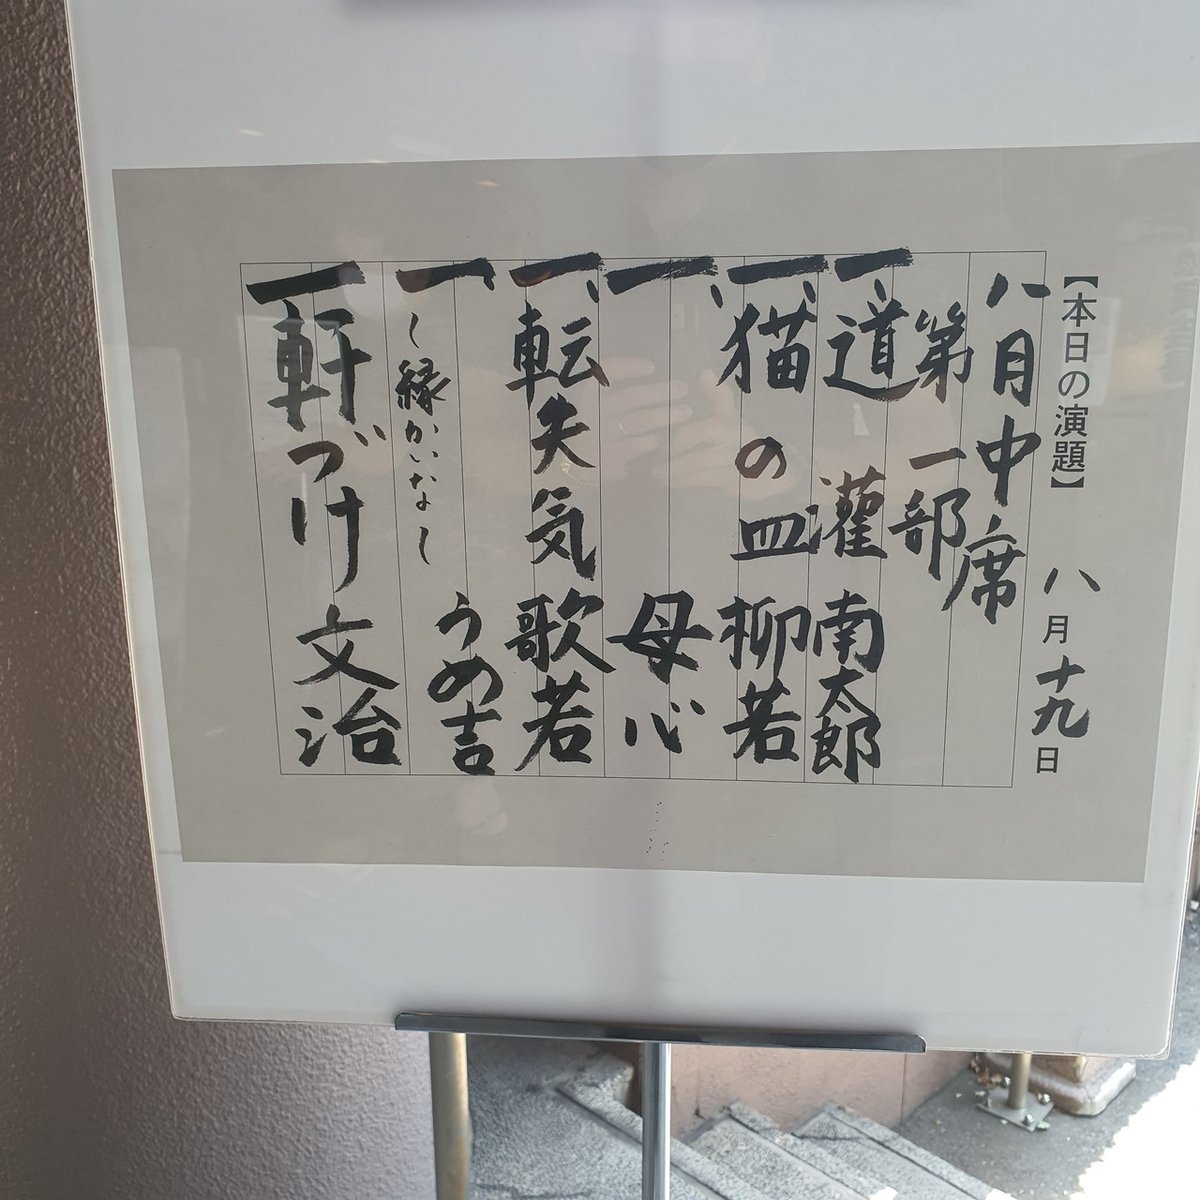 【本日の演題】 八月十九日
八月中席
第一部
一、道灌 南太郎
一、猫の皿 柳若
一、 母心
一、転失気 歌若
一、〽縁かいな〽 うめ吉
一軒づけ 文治